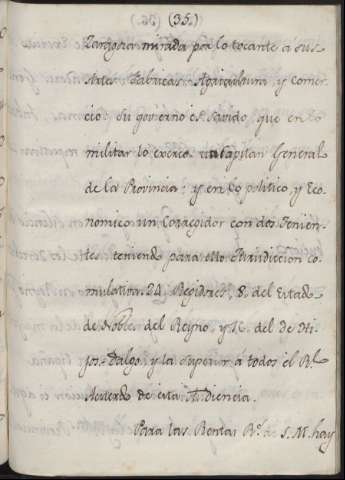 (35.)
Zaragoza mirada por lo tocante a sus
Artes Fabricas, Agricultura, y Comer
cio: su govierno es savido, que en lo
militar lo exerce un Capitan General
de la Provincia; y en lo politico, y Eco
nomico un Corregidor con dos Tenien-
tes teniendo para ello Jurisdiccion co
mulativa. 24 Regidores, 8. del Estado
de Nobles del Reyno, y 16. del de Hi
jos-Dalgo; y la superior a todos el Rl.
Acuerdo de esta Audiencia.
Para las Rentas Rs. de S. M. hay